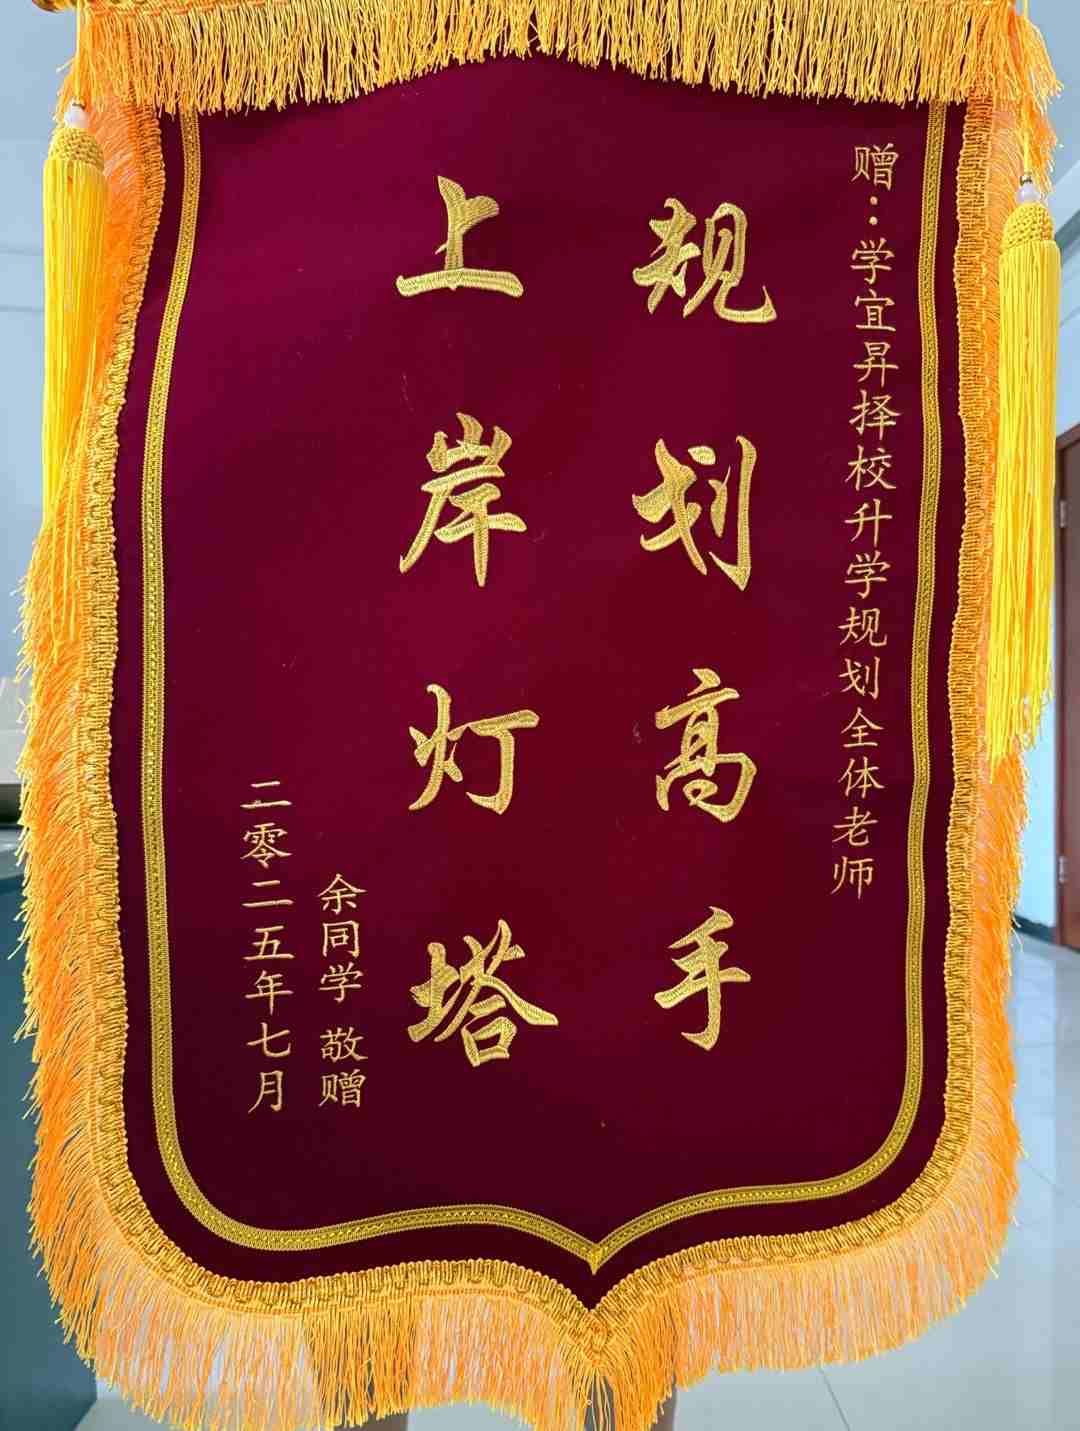 赠：学宜昇择校升学规划全体老师
规划高手
上岸灯塔
余同学 敬赠
二零二五年七月